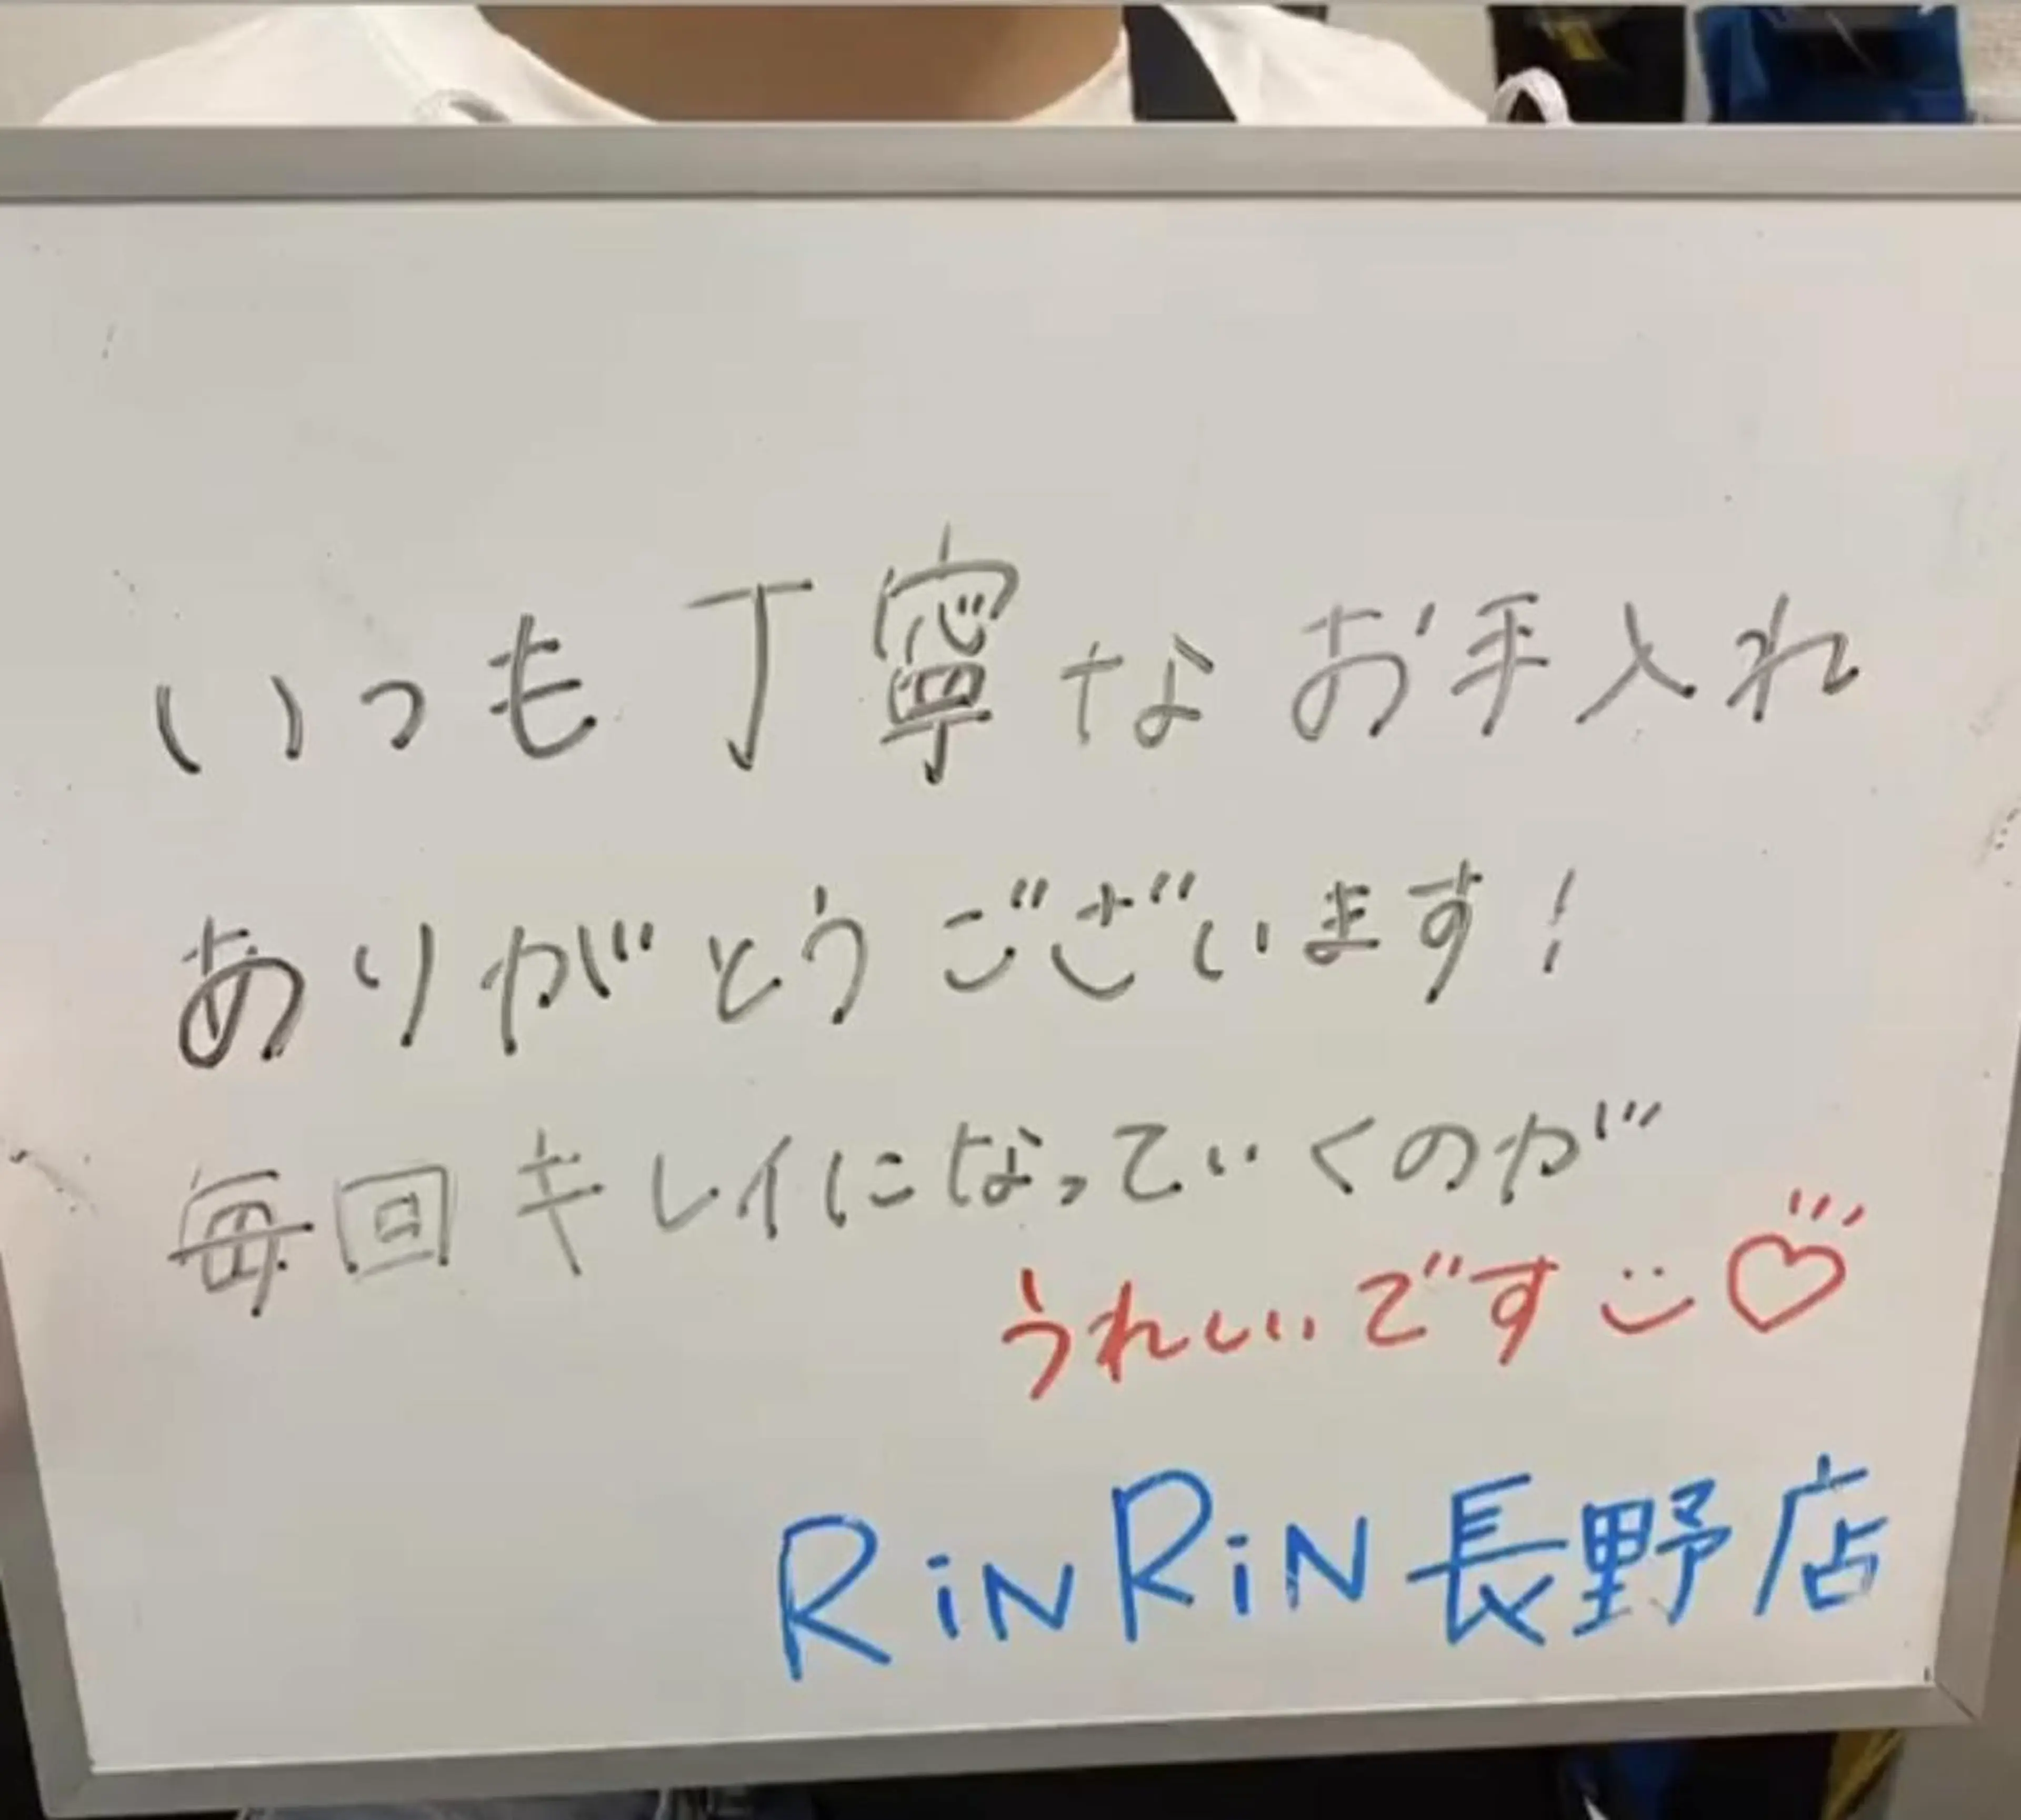 いつも丁寧なお手入れ
ありがとうございます！
毎回キレイになっていくのが
うれしいです
RiNRiN長野店